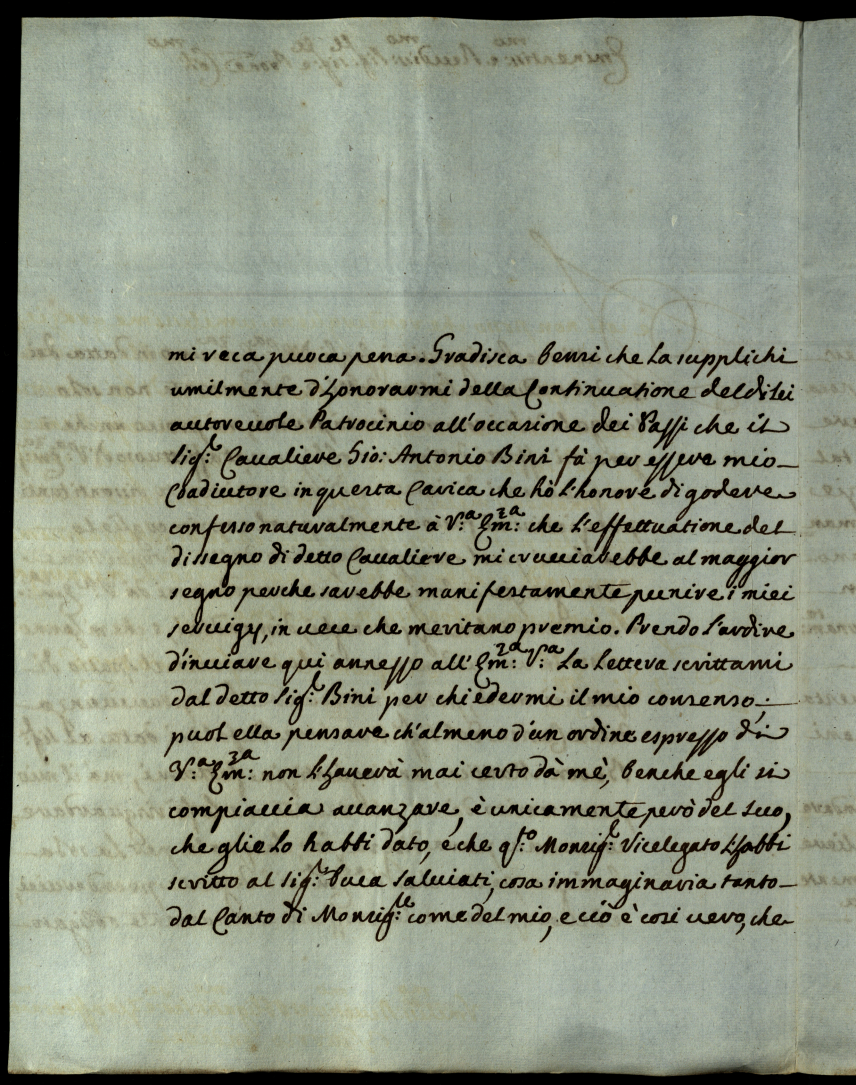 mi reca puoca pena. Gradisca bensi che la supplichi
umilmente d'honorarmi della Continuatione del di lei
autoreuole Patrocinio all'occasione dei Passi che il
Sig.r Caualiere Gio: Antonio Bini fà per essere mio
Coadiutore in questa Carica che hò l'honore di godere
confesso naturalmente à V.a Em.za che l'effettuatione del
dissegno di detto Caualiere mi crucciarebbe al maggior
segno perche sarebbe manifestamente punire i miei
seruigy, in uece che meritano premio. Prendo l'ardire
d'inuiare qui annesso all'Em.za V.a la lettera scrittami
dal detto Sig.r Bini per chiedermi il mio consenso;
puol ella pensare ch'almeno d'un ordine espresso di
V.a Em.za non l'hauerà mai certo dà mè, benche egli si
compiaccia auanzare, è unicamente però del suo,
che glielo habbi dato, e che q.sto Monsig.r Vicelegato l'habbi
scritto al Sig.r Duca Saluiati, cosa immaginaria tanto
dal Canto di Monsig.re come del mio, e ciò è cosi uero, che